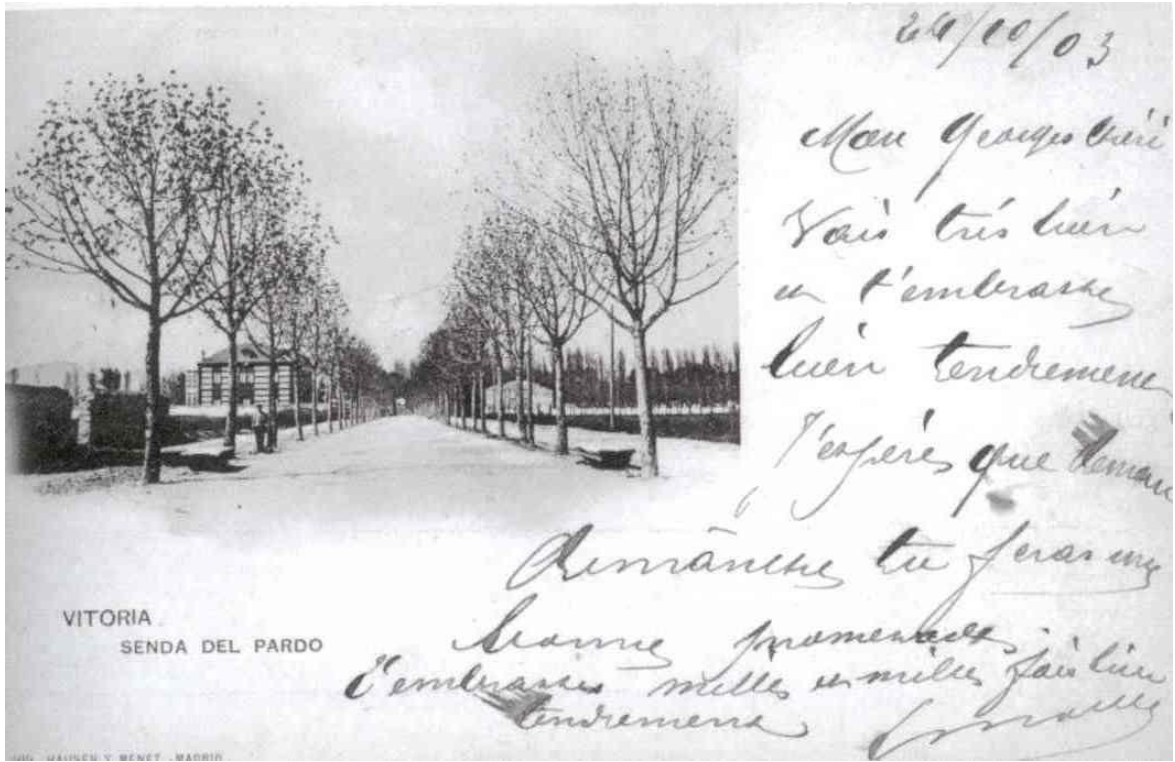 24/10/03
Mon Georges chéri
Vais très bien
et t'embrasse
bien tendrement
J'espères que demain
dimanche tu feras une
bonne promenade.
T'embrasse milles et milles fois bien
tendrement
VITORIA
SENDA DEL PARDO
HAUSER Y MENET.-MADRID